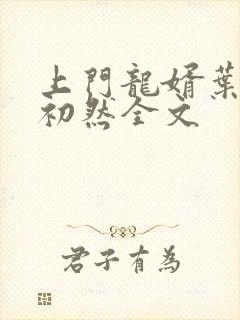 上門龍婿葉
初然全文
君子有為